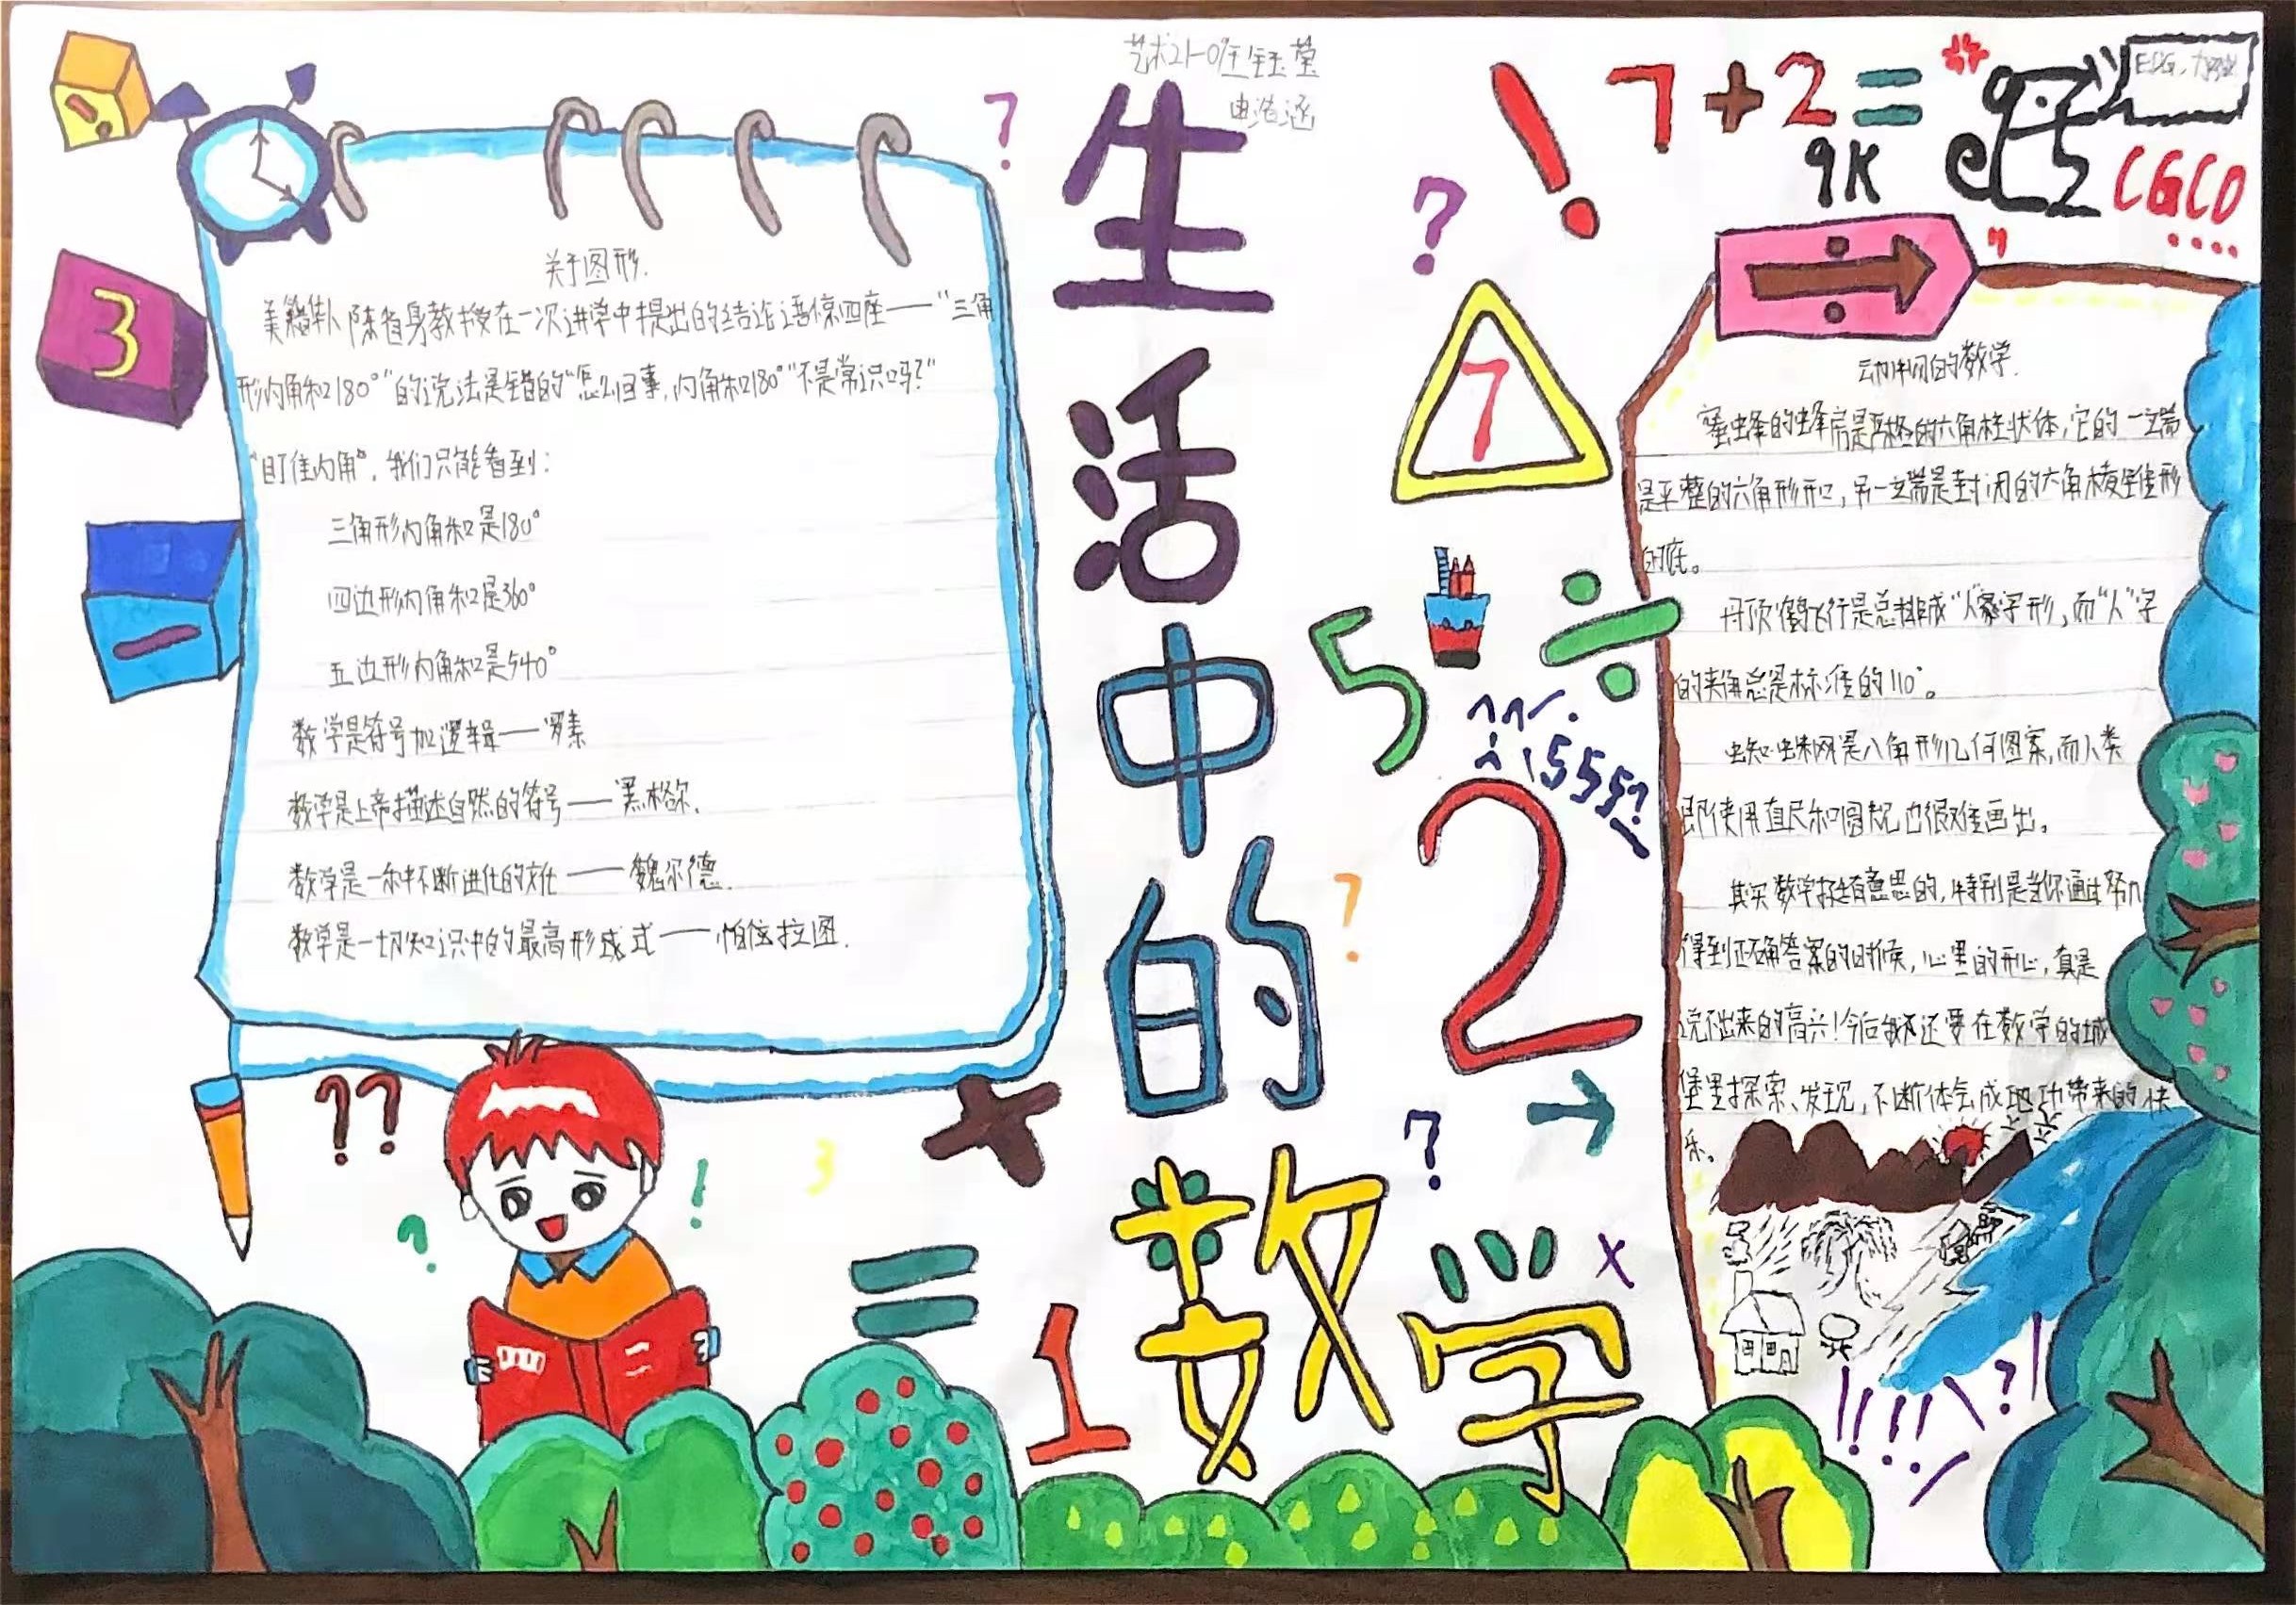 艺术21-01王钰莹
生活中的数学
7+2=
9K
CGCO
关于图形.
美籍华人陈省身教授在一次讲学中提出的结论语惊四座——“三角
形内角和180°”的说法是错的“怎么回事,内角和180°”不是常识吗?”
“盯住内角”,我们只能看到:
三角形内角和是180°
四边形内角和是360°
五边形内角和是540°
数学是符号加逻辑——罗素
数学是上帝描述自然的符号——黑格尔.
数学是一种不断进化的文化——魏尔德.
数学是一切知识中的最高形式——柏拉图.
动物间的数学.
蜜蜂的蜂房是严格的六角柱状体,它的一端
是平整的六角形开口,另一端是封闭的六角棱锥形
的底。
丹顶鹤飞行是总排成“人”字形,而“人”字
的夹角总是标准的110°。
蜘蛛网是八角形几何图案,而人类
即使用直尺和圆规也很难画出。
其实数学挺有意思的,特别是当你通过努力
得到正确答案的时候,心里的开心,真是
说不出来的高兴!今后我还要在数学的城
堡里探索、发现,不断体会成功带来的快
乐。
3
7
5÷
555?
2
3
1